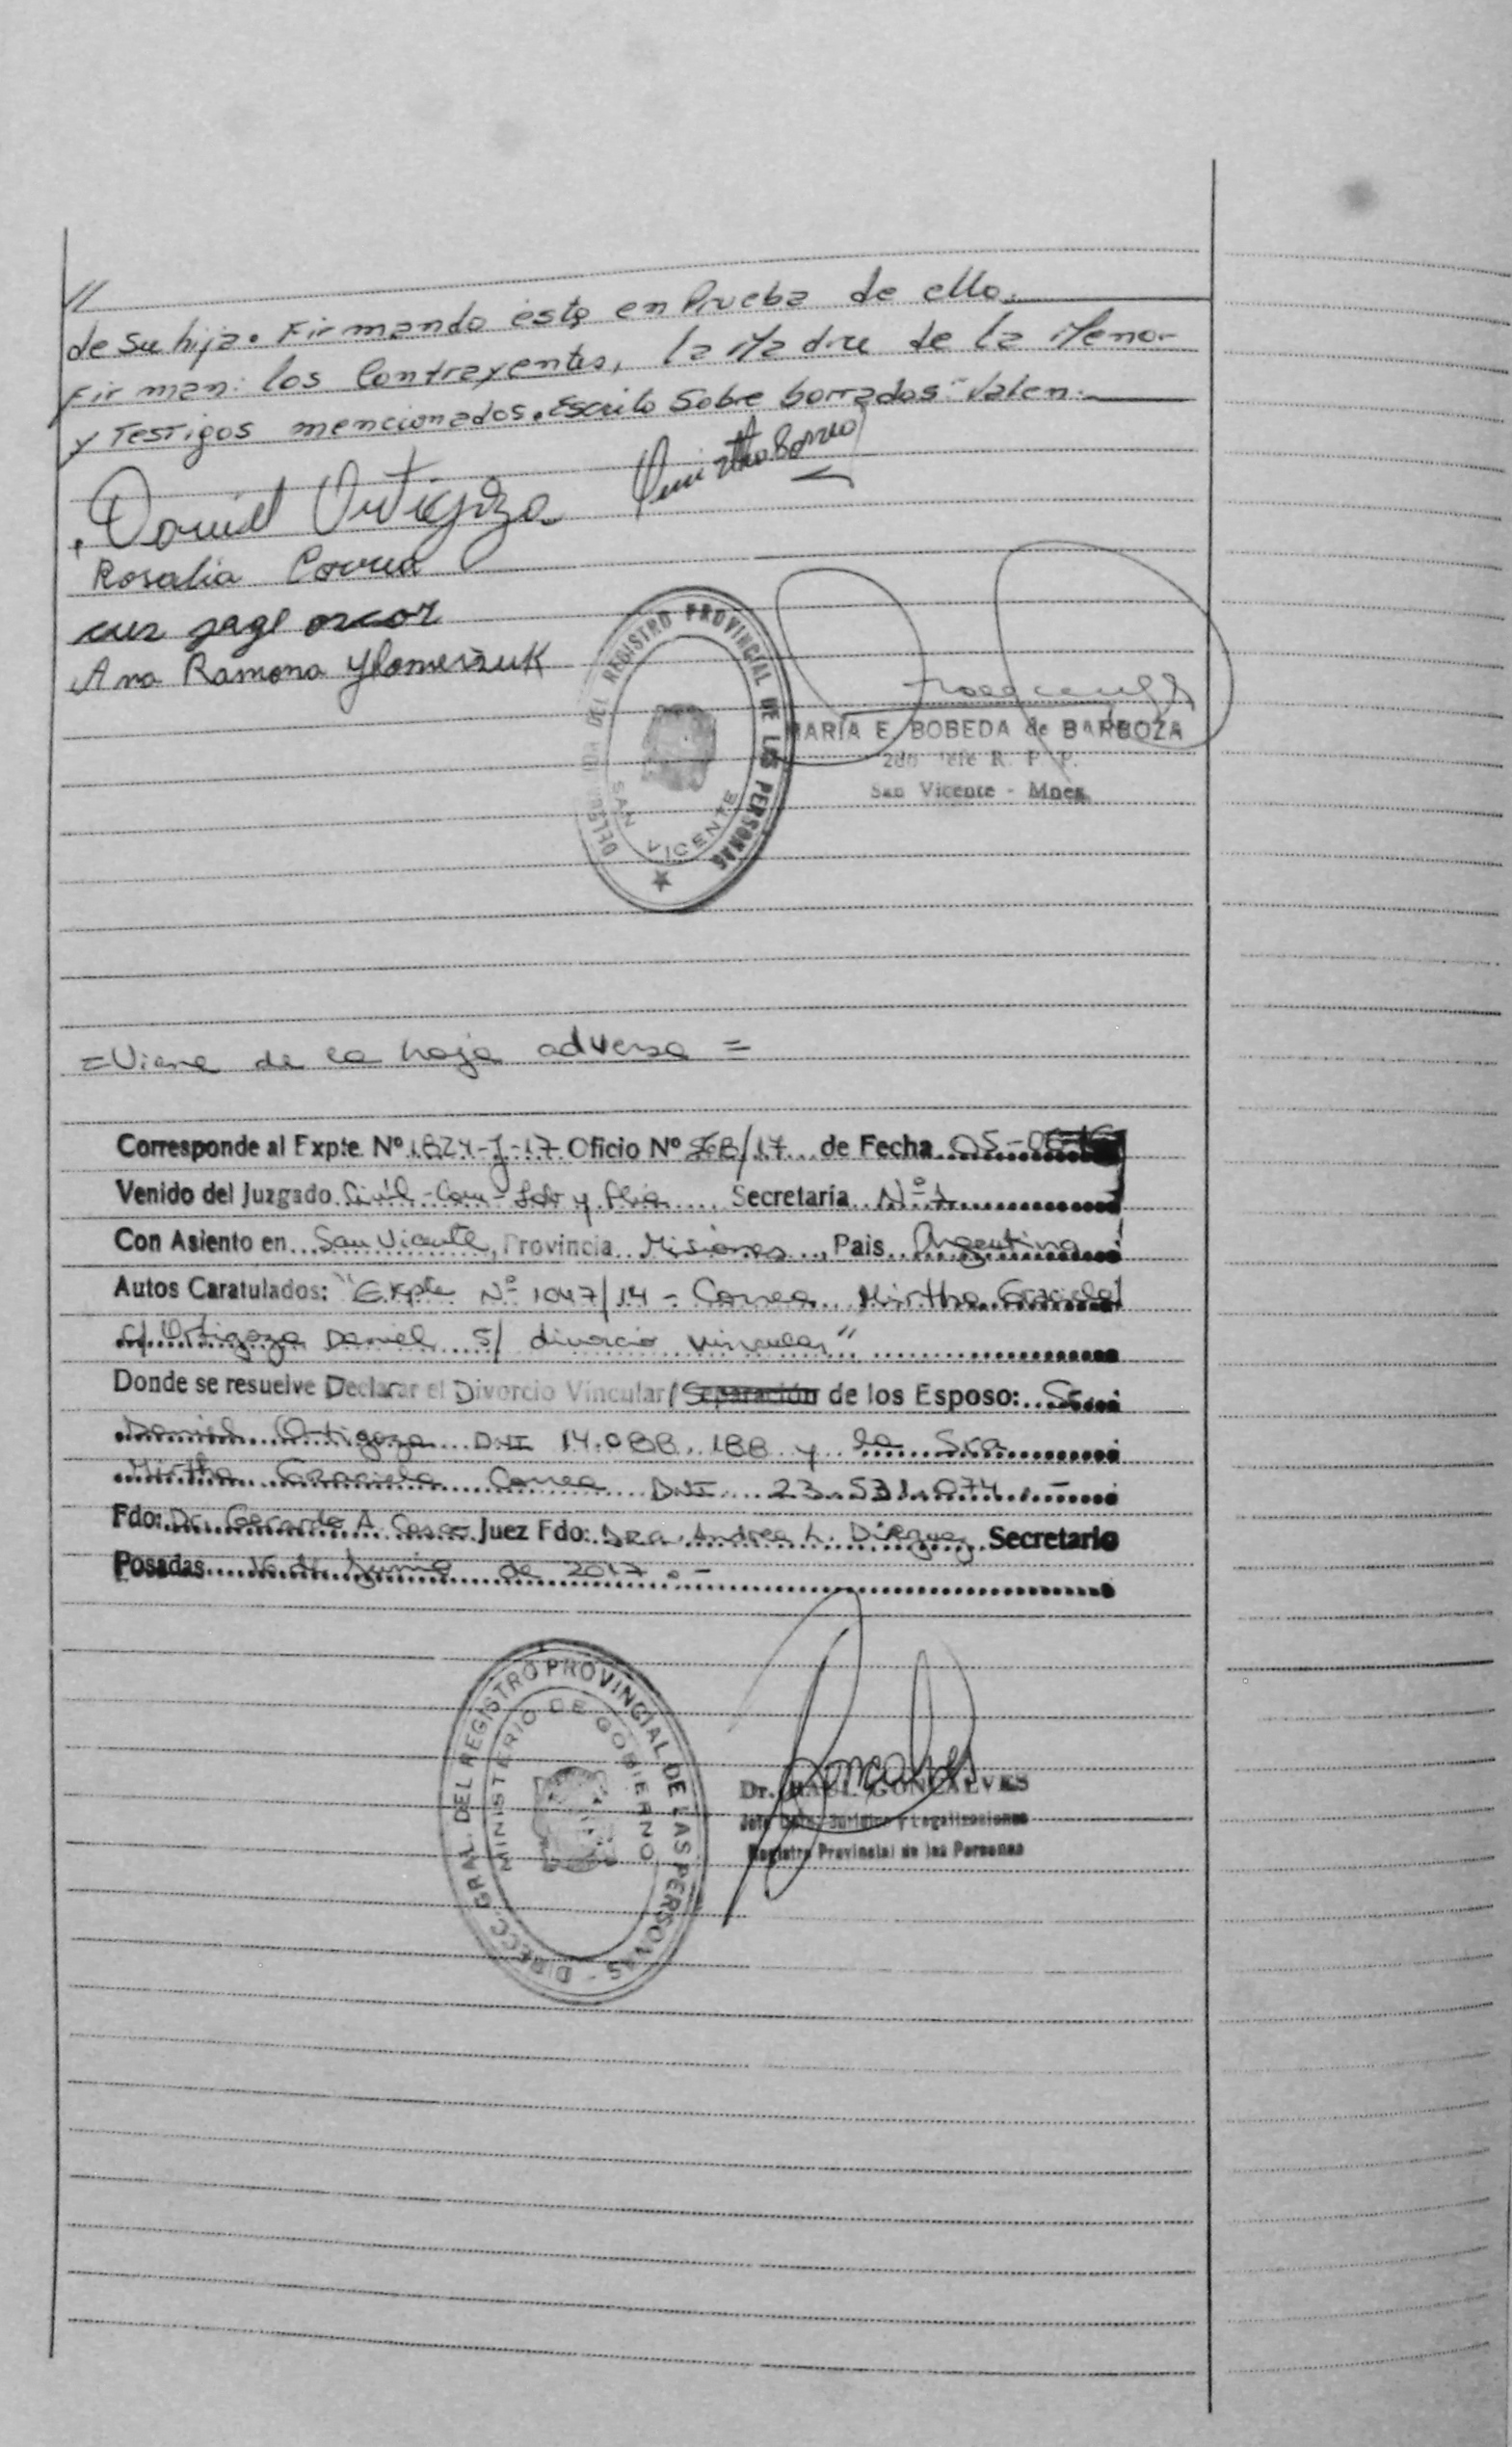 //
de su hija. Firmando ésta en Prueba de ello.
Firman: los Contrayentes, la Madre de la Menor
y Testigos mencionados. Escrito Sobre borrados - Valen.
Daniel Ortigoza
Rosalia Correa
Ana Ramona
DEL REGISTRO PROVINCIAL DE LAS PERSONAS
SAN VICENTE
MARÍA E. BOBEDA de BARBOZA
2do Jefe R. P. P.
San Vicente - Mnes.
= Viene de la hoja adversa =
Corresponde al Expte. Nº 1824-J-17 Oficio Nº 568/17 de Fecha 05-06-
Venido del Juzgado Civil - Com - Lab y Flia Secretaría Nº 1
Con Asiento en San Vicente, Provincia Misiones, Pais Argentina
Autos Caratulados: "Expte Nº 1047/14 - Correa Mirtha Graciela
c/ Ortigoza Daniel s/ divorcio vincular"
Donde se resuelve Declarar el Divorcio Vincular/Separación de los Esposo: Sr.
Daniel Ortigoza DNI 14.088.188 y la Sra
Mirtha Graciela Correa DNI 23.531.074.-
Fdo: Dr. Gerardo A. Juez Fdo: Dra. Andrea L. Secretario
Posadas 16 de Junio de 2017.-
DIRECC. GRAL. DEL REGISTRO PROVINCIAL DE LAS PERSONAS -
MINISTERIO DE GOBIERNO
Dr. RAUL GONCALVES
Jefe Dpto. Jurídico y Legalizaciones
Registro Provincial de las Personas